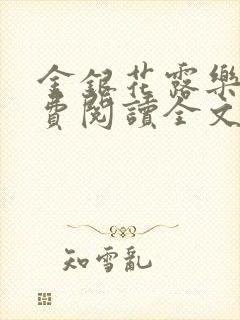 金銀花露樂
費閱讀全文
知雪亂